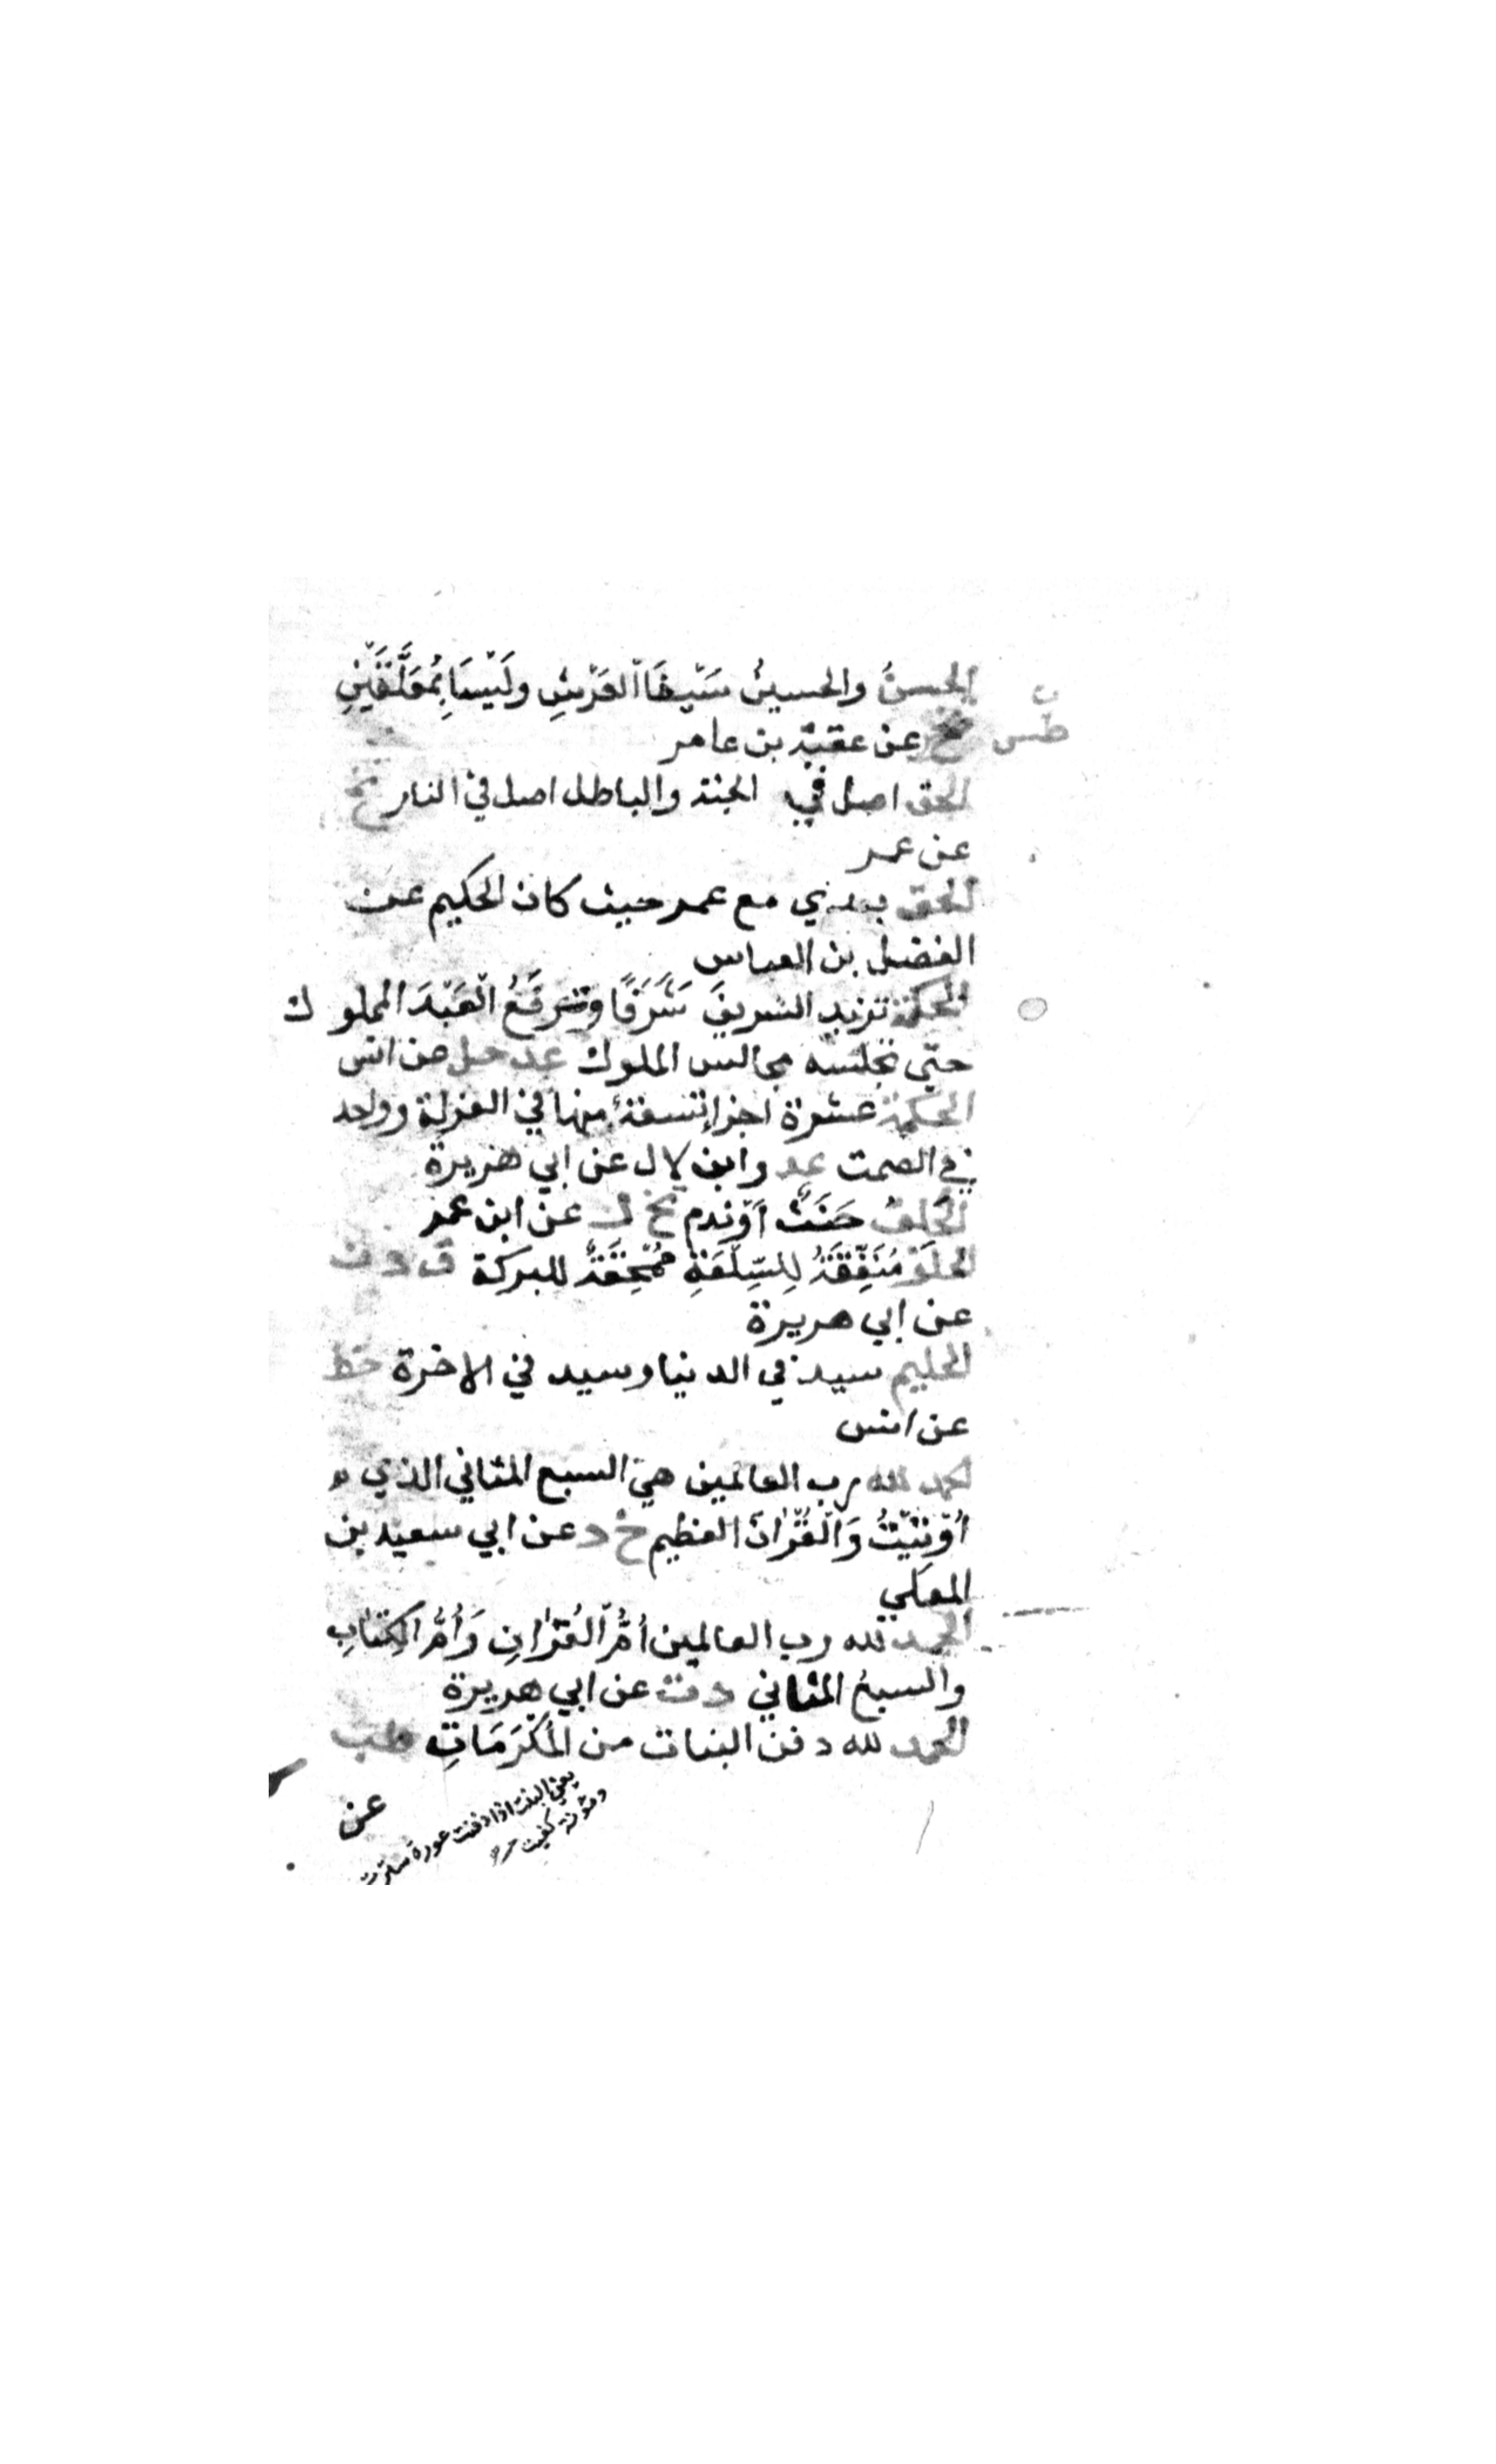 الحسنُ والحسينُ سَيْفَا الْعَرْشِ ولَيْسَا بِمُعَلَّقَيْنِ
طس عن عقبة بن عامر
الحق اصل في الجنة والباطل اصل في النار تخ
عن عمر
الحق بعدي مع عمر حيث كان الحكيم عن
الفضل بن العباس
الحكمة تزيد الشريفَ شَرَفًا وتَرفَعُ الْعَبْدَ المملوك
حتي تجلسَه مجالس الملوك عد حل عن انس
الحكمة عشرة اجزا تسعةٌ منها في العزلة وواحد
في الصمت عد وابن لال عن ابي هريرة
الحلفُ حَنَثٌ اَوْندم تخ ك عن ابن عمر
الحلفَ مُنَفِّقَةٌ لِلسِّلْعَةِ مُمْحِقَةٌ للبركة ق د ن
عن ابي هريرة
الحليم سيد في الدنيا وسيد في الاخرة خط
عن انس
الحمد لله رب العالمين هي السبع المثاني الذي
اُوْتِيْتُ وَالْقُرْانَ العظيم خ د عن ابي سعيد بن
المعلي
الحمد لله رب العالمين اُمُّ الْقُرْانِ وَاُمُّ الكِتَابِ
والسبعُ المثاني د ت عن ابي هريرة
الحمد لله دفن البنات من المَكْرَمَاتِ طب
عن
يعني البنت اذا دفنت عورة سترت
ومؤنة كفيت